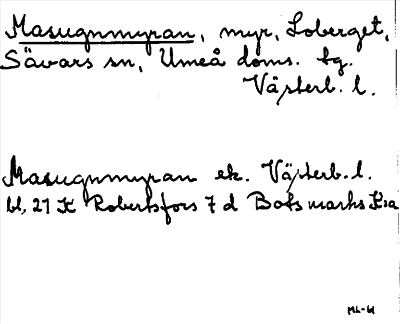 Masugnmyran, myr, Loberget,
Sävars sn, Umeå doms. tg.
Västerb. l.
Masugnmyran ek. Västerb. l.
bl, 21 K Robertsfors 7 d Botsmarks
ML-61